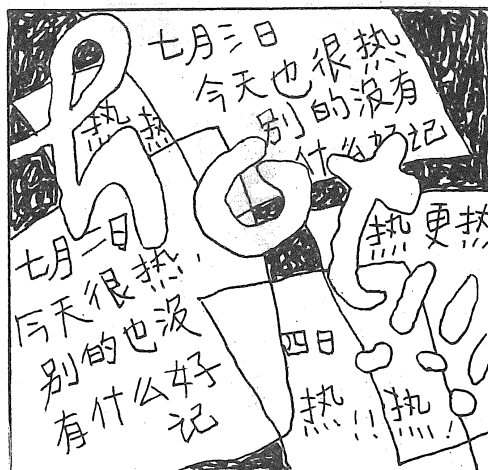 hot!!!
热 热
七月三日
今天也很热
别的没有
什么好记
七月二日
今天很热
别的也没
有什么好
记
热更热
四日
热!! 热!!!